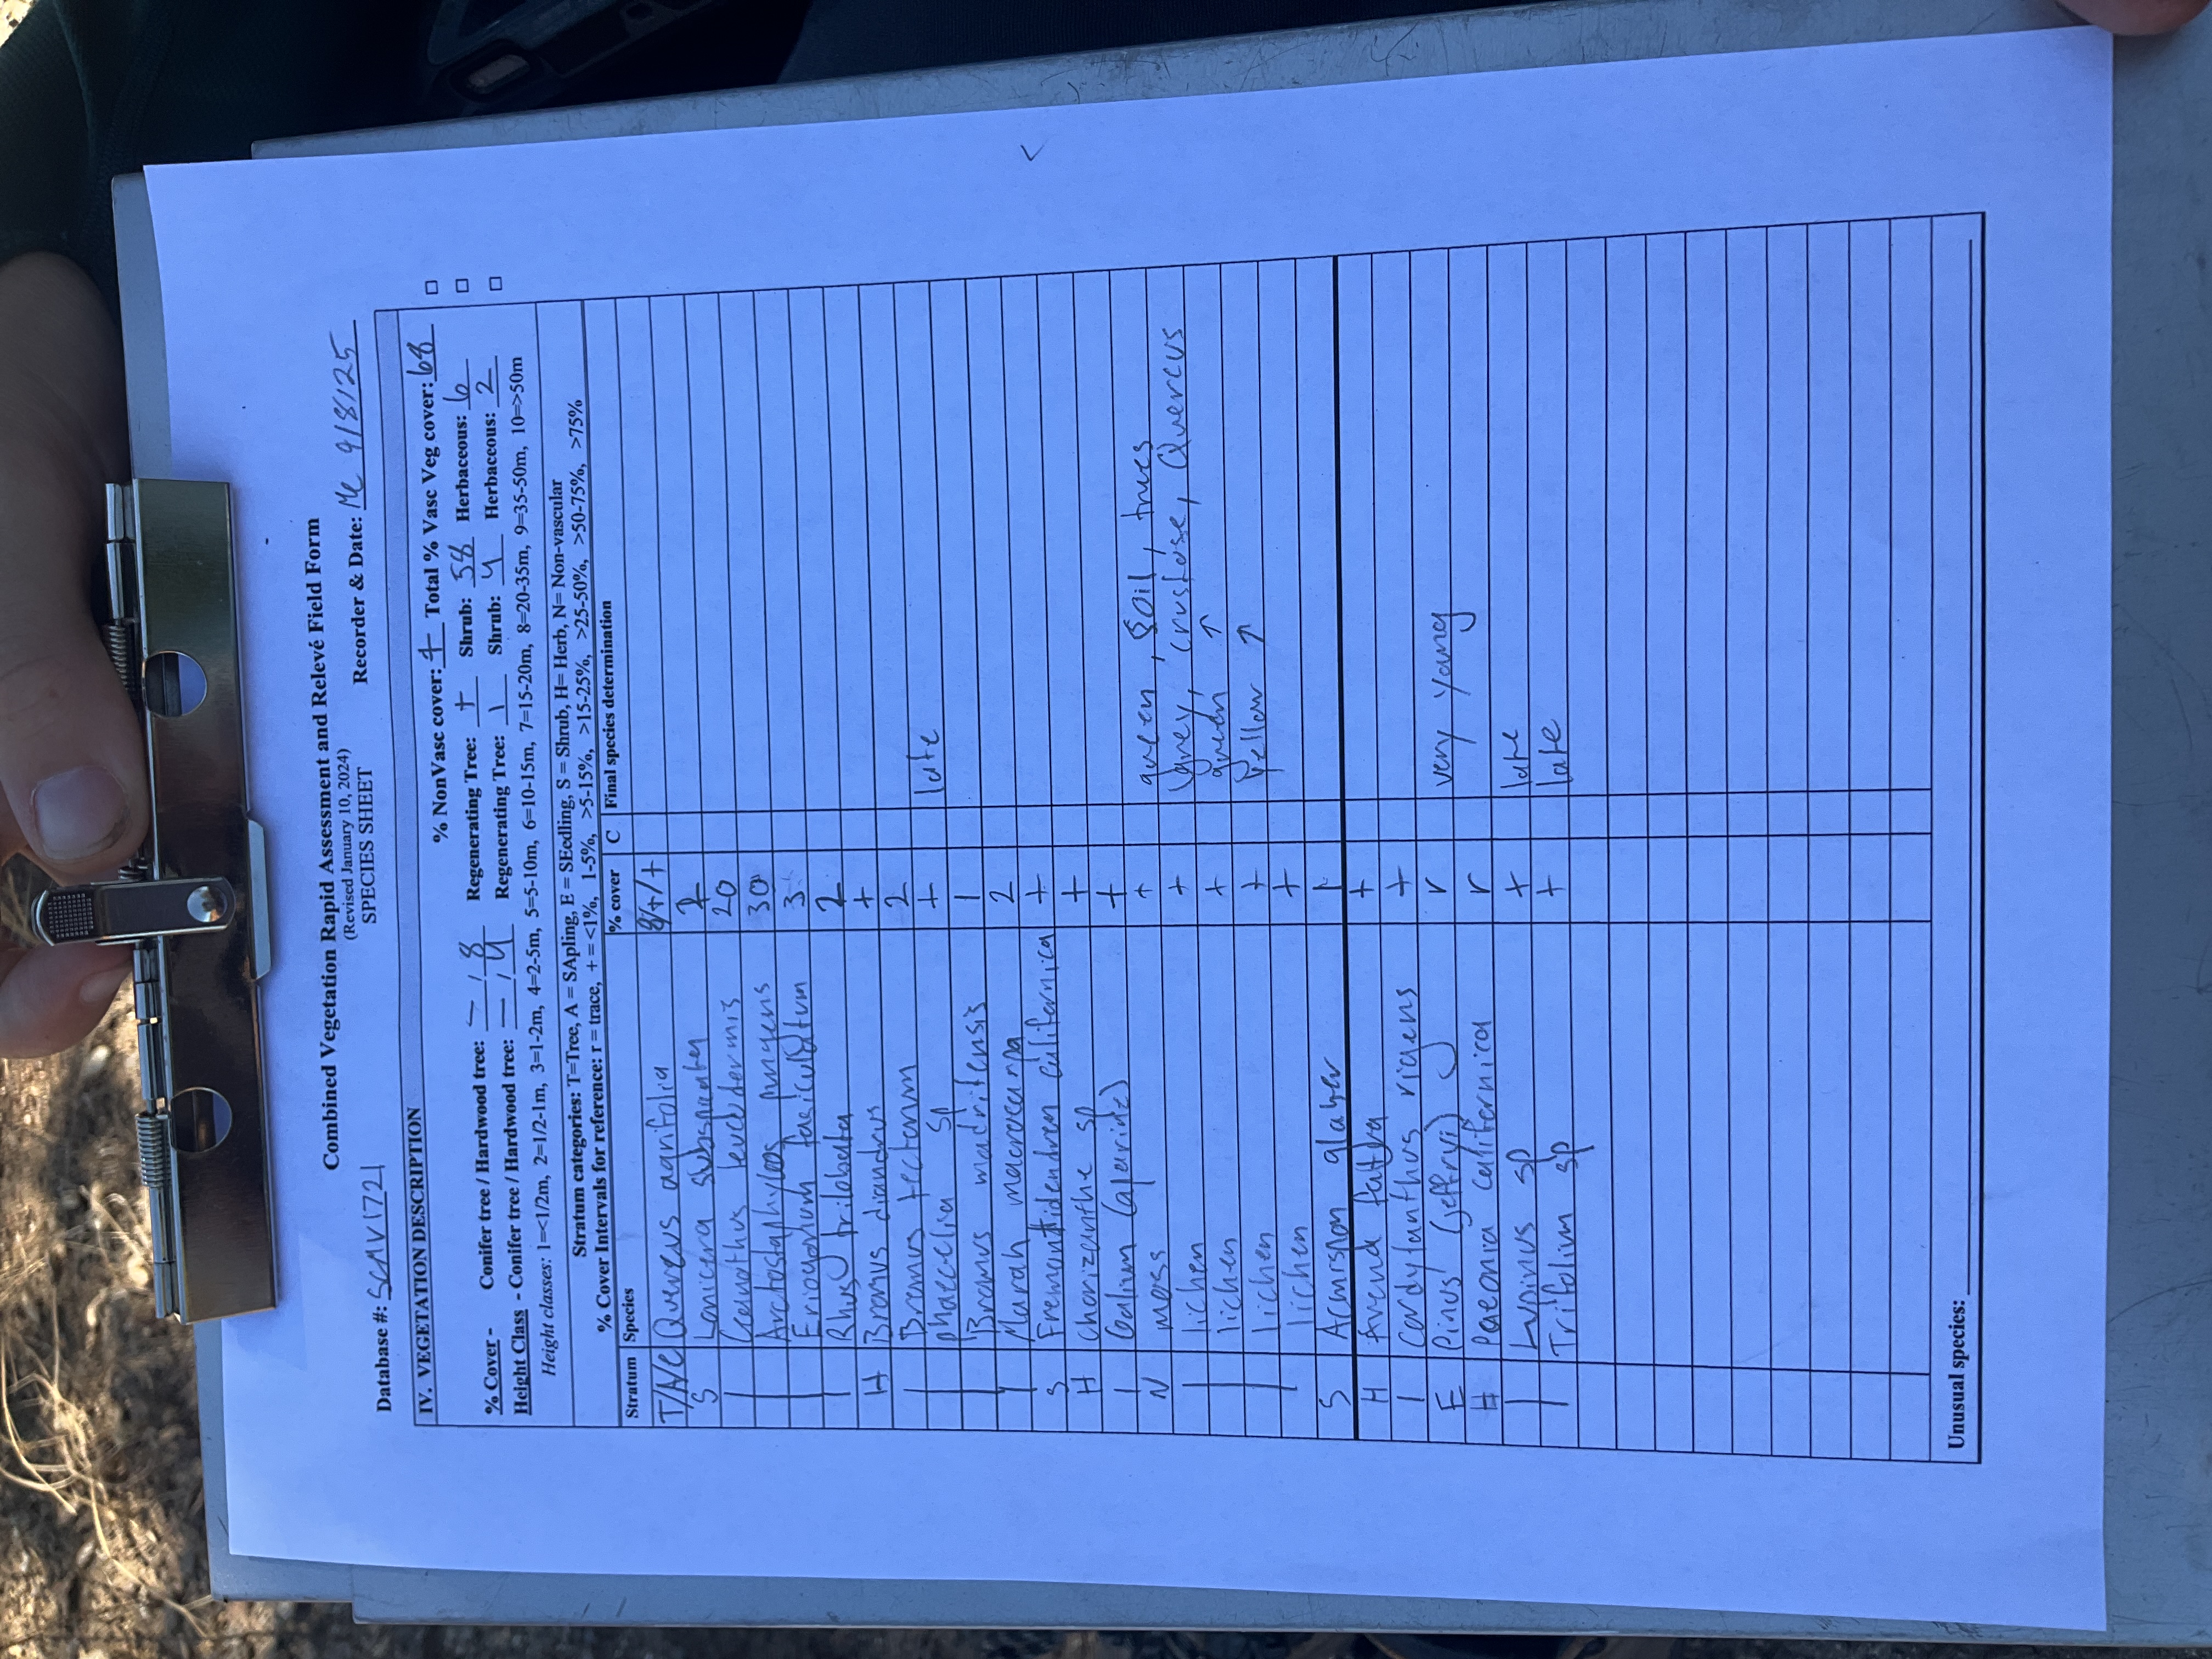 Combined Vegetation Rapid Assessment and Relevé Field Form
(Revised January 10, 2024)
SPECIES SHEET
Database #: SCMV1721 Recorder & Date: MC 9/8/25
IV. VEGETATION DESCRIPTION
% NonVasc cover: + Total % Vasc Veg cover: 68
% Cover - Conifer tree / Hardwood tree: - / 8 Regenerating Tree: + Shrub: 58 Herbaceous: 6
Height Class - Conifer tree / Hardwood tree: - / 4 Regenerating Tree: 1 Shrub: 4 Herbaceous: 2
Height classes: 1=<1/2m, 2=1/2-1m, 3=1-2m, 4=2-5m, 5=5-10m, 6=10-15m, 7=15-20m, 8=20-35m, 9=35-50m, 10=>50m
Stratum categories: T=Tree, A = SApling, E = SEedling, S = Shrub, H= Herb, N= Non-vascular
% Cover Intervals for reference: r = trace, + = <1%, 1-5%, >5-15%, >15-25%, >25-50%, >50-75%, >75%
Stratum Species % cover C Final species determination
Quercus agrifolia 8/+/+
S Lonicera subspicata
| Ceanothus leucodermis 20
| Arctostaphylos pungens 30
| Eriogonum fasiculatum 3
| Rhus trilobata 2
H Bromus diandrus +
| Bromus tectorum 2
| Phacelia sp + late
| Bromus madritensis 1
| Marah macrocarpa 2
S Fremontodendron californica +
H Chorizanthe sp +
| Galium (aparine) +
N moss + green, soil, trees
| lichen + Grey, crustose, Quercus
| lichen + green ↑
| lichen + Yellow ↑
| lichen +
S Acmispon glaber 1
H Avena fatua +
| Cordylanthus rigens +
E Pinus (jeffryi) r very young
H Paeonia californica r
| Lupinus sp + late
| Trifolium sp + late
Unusual species: